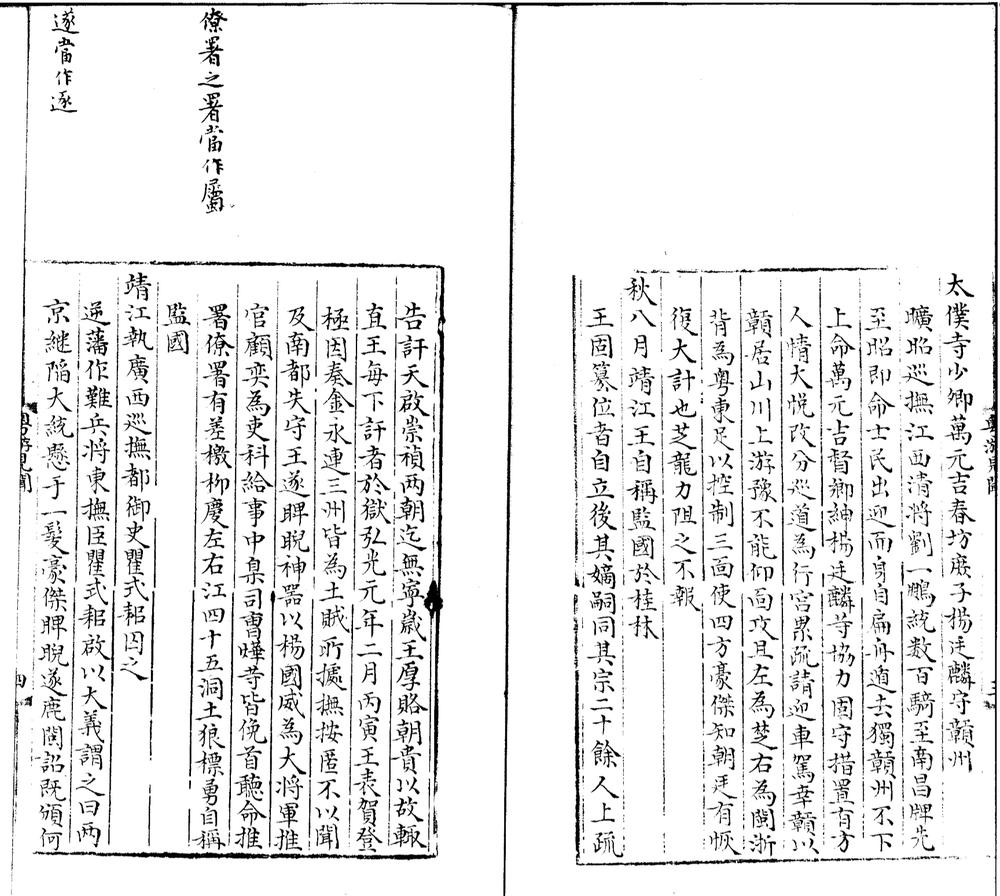 太僕寺少卿萬元吉春坊庶子楊廷麟守贛州
曠昭巡撫江西清將劉一鵬統数百騎至南昌牌先
至昭即命士民出迎而身自扁舟遁去獨贛州不下
上命萬元吉督鄉紳楊廷麟等協力固守措置有方
人情大悦改分巡道為行宮累疏請迎車駕幸贛以
贛居山川上游豫不能仰面攻且左為楚右為閩浙
背為粤東足以控制三面使四方豪傑知朝廷有恢
復大計也芝龍力阻之不報
秋八月靖江王自稱監國於桂林
王固篡位者自立後其嫡嗣同其宗二十餘人上疏
告訐天啟崇禎两朝迄無寧歲王厚賂朝貴以故輙
直王每下訐者於獄弘光元年二月丙寅王表賀登
極因奏金永連三州皆為土賊所據撫按匿不以聞
及南都失守王遂睥睨神器以楊國威為大将軍推
官顧奕為吏科給事中臬司曹曄等皆俛首聽命推
署僚署有差檄柳慶左右江四十五洞土狼標勇自稱
監國
靖江執廣西巡撫都御史瞿式耜囚之
逆藩作難兵將東撫臣瞿式耜啟以大義謂之曰两
京継陷大統懸于一髮豪傑睥睨遂鹿閩詔既頒何
僚署之署當作屬
遂當作逐
粤游見聞
四